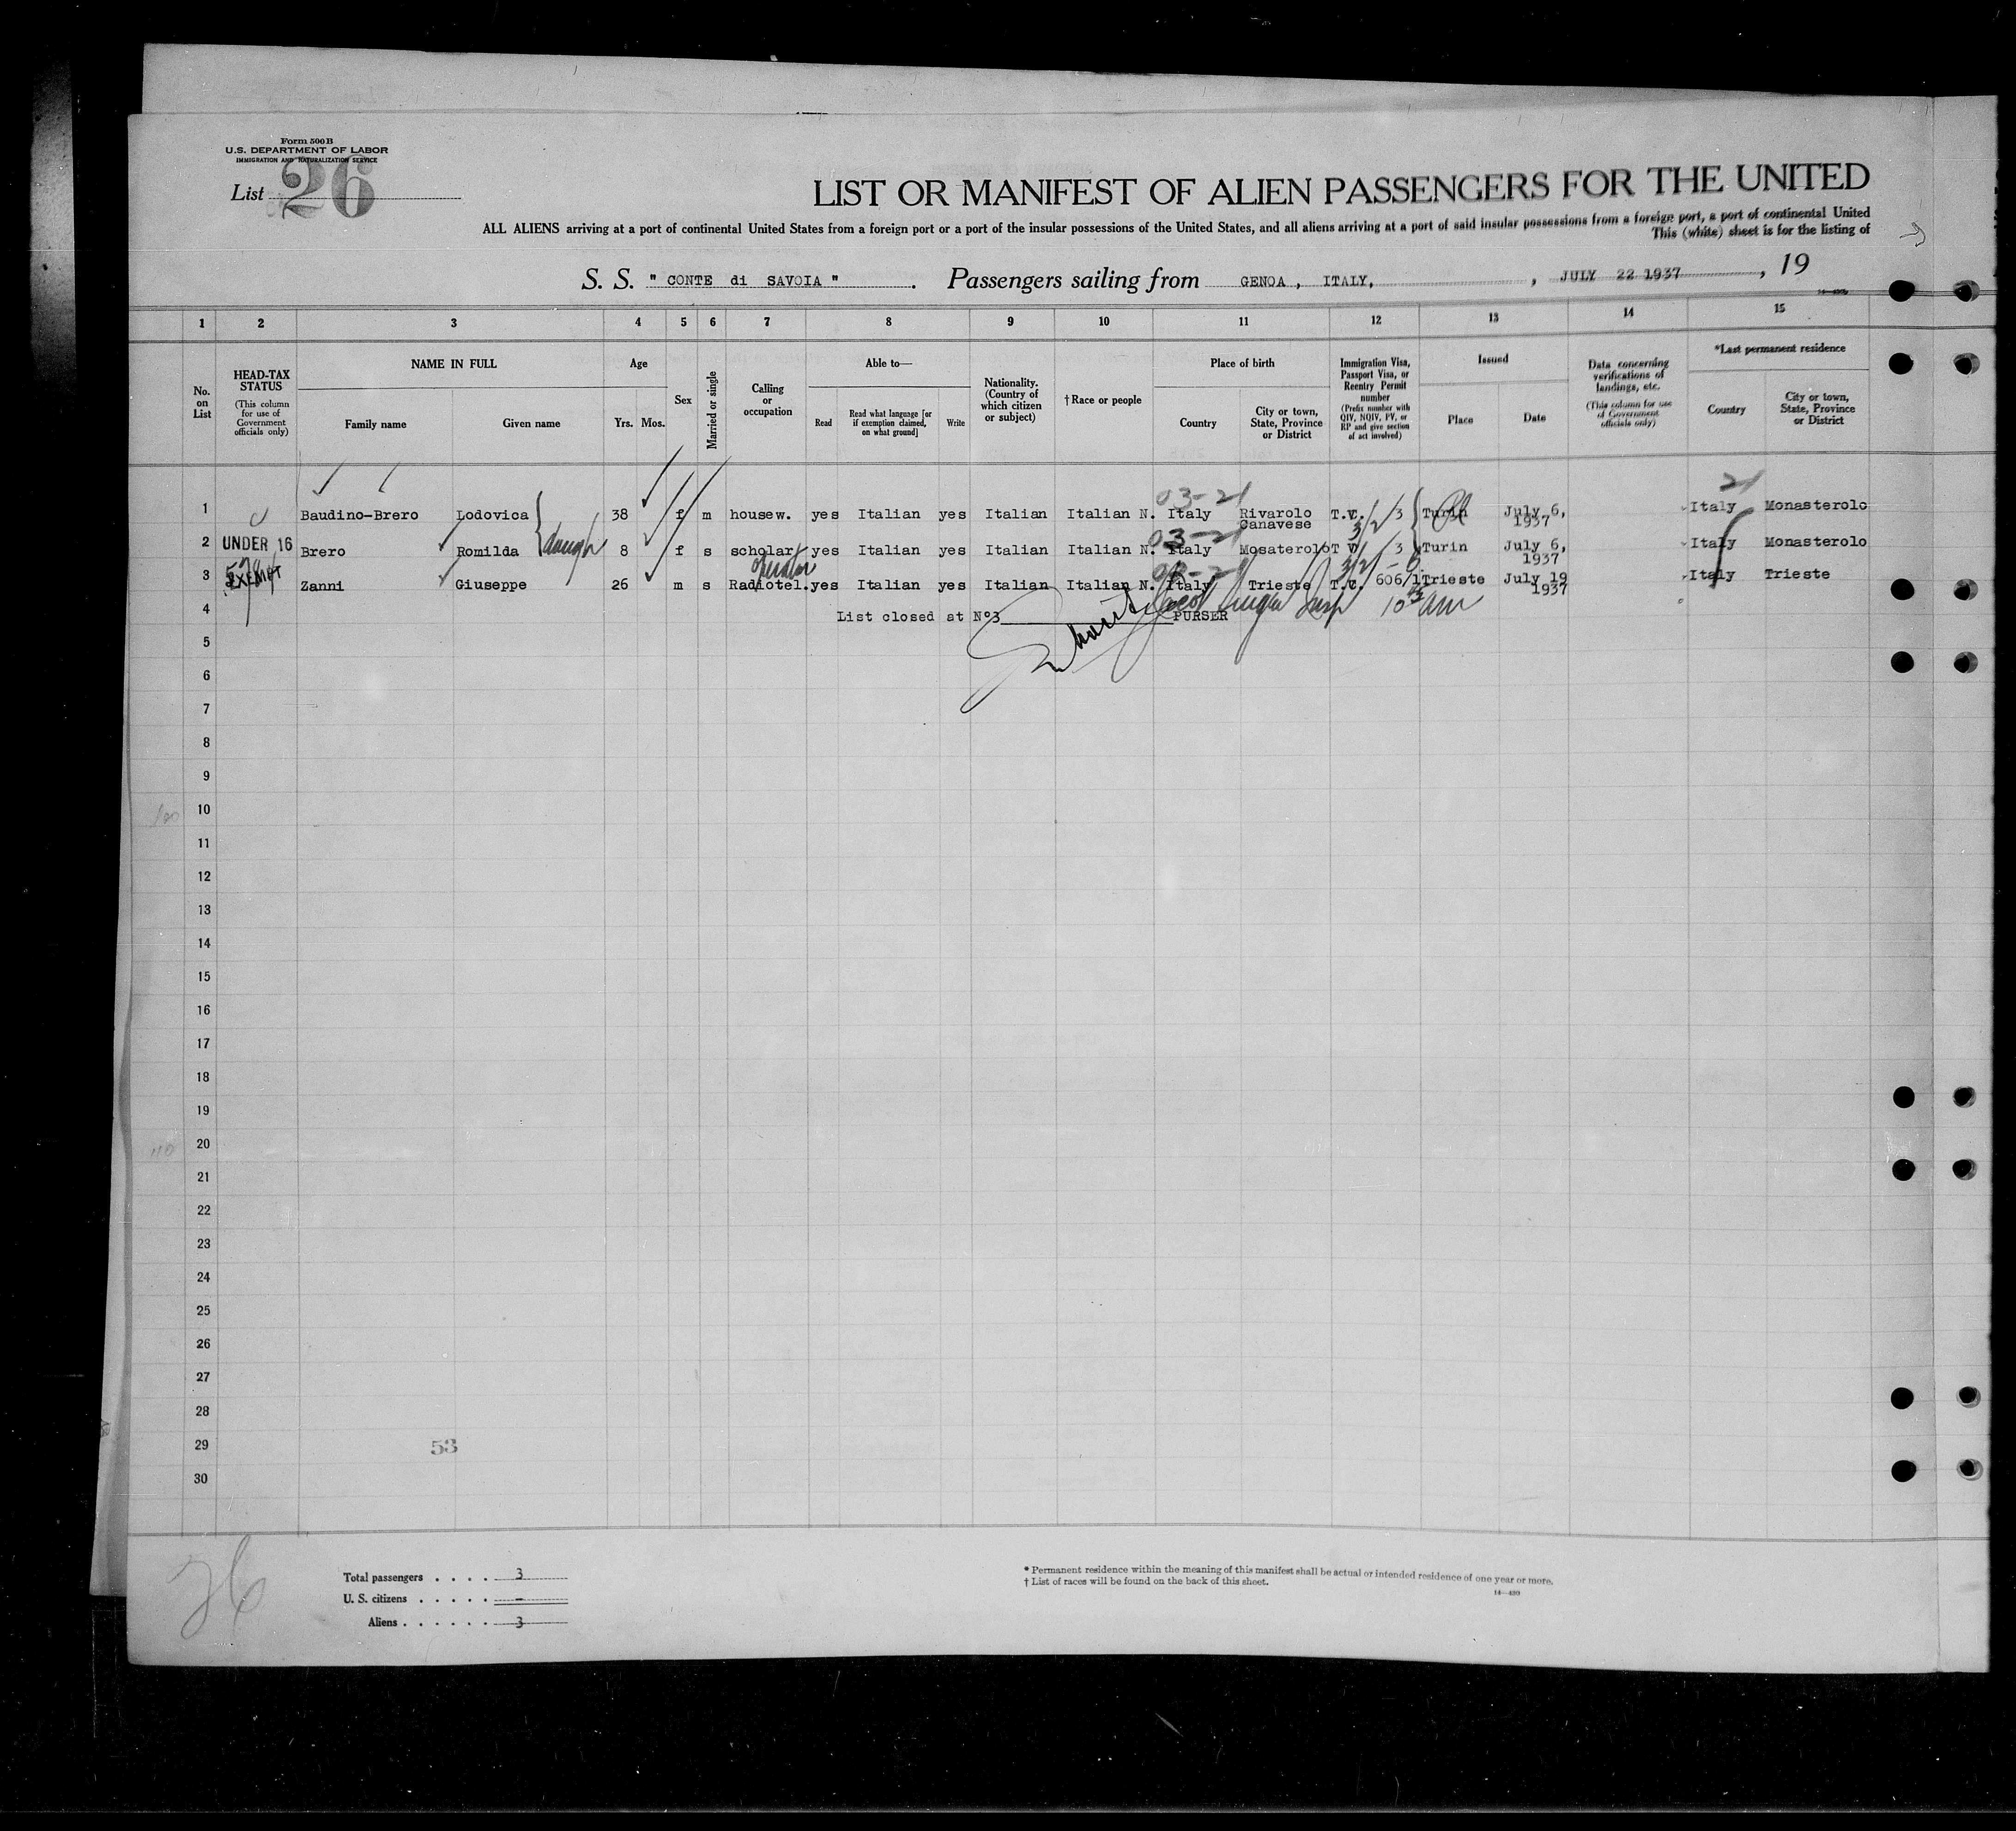 Form 500 B
U.S. DEPARTMENT OF LABOR
IMMIGRATION AND NATURALIZATION SERVICE
List 26
LIST OR MANIFEST OF ALIEN PASSENGERS FOR THE UNITED
ALL ALIENS arriving at a port of continental United States from a foreign port or a port of the insular possessions of the United States, and all aliens arriving at a port of said insular possessions from a foreign port, a port of continental United
This (white) sheet is for the listing of
S. S. " CONTE di SAVOIA " . Passengers sailing from GENOA , ITALY, , JULY 22 1937 , 19
1 2 3 4 5 6 7 8 9 10 11 12 13 14 15
No. on List
HEAD-TAX STATUS (This column for use of Government officials only)
NAME IN FULL
Family name Given name
Age
Yrs. Mos.
Sex
Married or single
Calling or occupation
Able to—
Read Read what language [or if exemption claimed, on what ground] Write
Nationality. (Country of which citizen or subject)
†Race or people
Place of birth
Country City or town, State, Province or District
Immigration Visa, Passport Visa, or Reentry Permit number (Prefix number with QIV, NQIV, PV, or RP and give section of act involved)
Issued
Place Date
Data concerning verifications of landings, etc. (This column for use of Government officials only)
*Last permanent residence
Country City or town, State, Province or District
03-21 21
1 Baudino-Brero Lodovica 38 f m housew. yes Italian yes Italian Italian N. Italy Rivarolo Canavese T.V. 3/2/ 3 Turin July 6, 1937 Italy Monasterolo
03-21
2 UNDER 16 Brero Romilda daugh 8 f s scholar yes Italian yes Italian Italian N. Italy Mosaterolo T V 3 Turin July 6, 1937 Italy Monasterolo
operator
3 EXEMPT Zanni Giuseppe 26 m s Radiotel. yes Italian yes Italian Italian N. Italy Trieste T.V. 606/1 Trieste July 19 1937 Italy Trieste
4 List closed at N°3 PURSER Insp 10 am
5
6
7
8
9
10
11
12
13
14
15
16
17
18
19
20
21
22
23
24
25
26
27
28
29 53
30
26
Total passengers . . . . 3
U. S. citizens . . . . . –
Aliens . . . . . . 3
* Permanent residence within the meaning of this manifest shall be actual or intended residence of one year or more.
† List of races will be found on the back of this sheet.
14—430